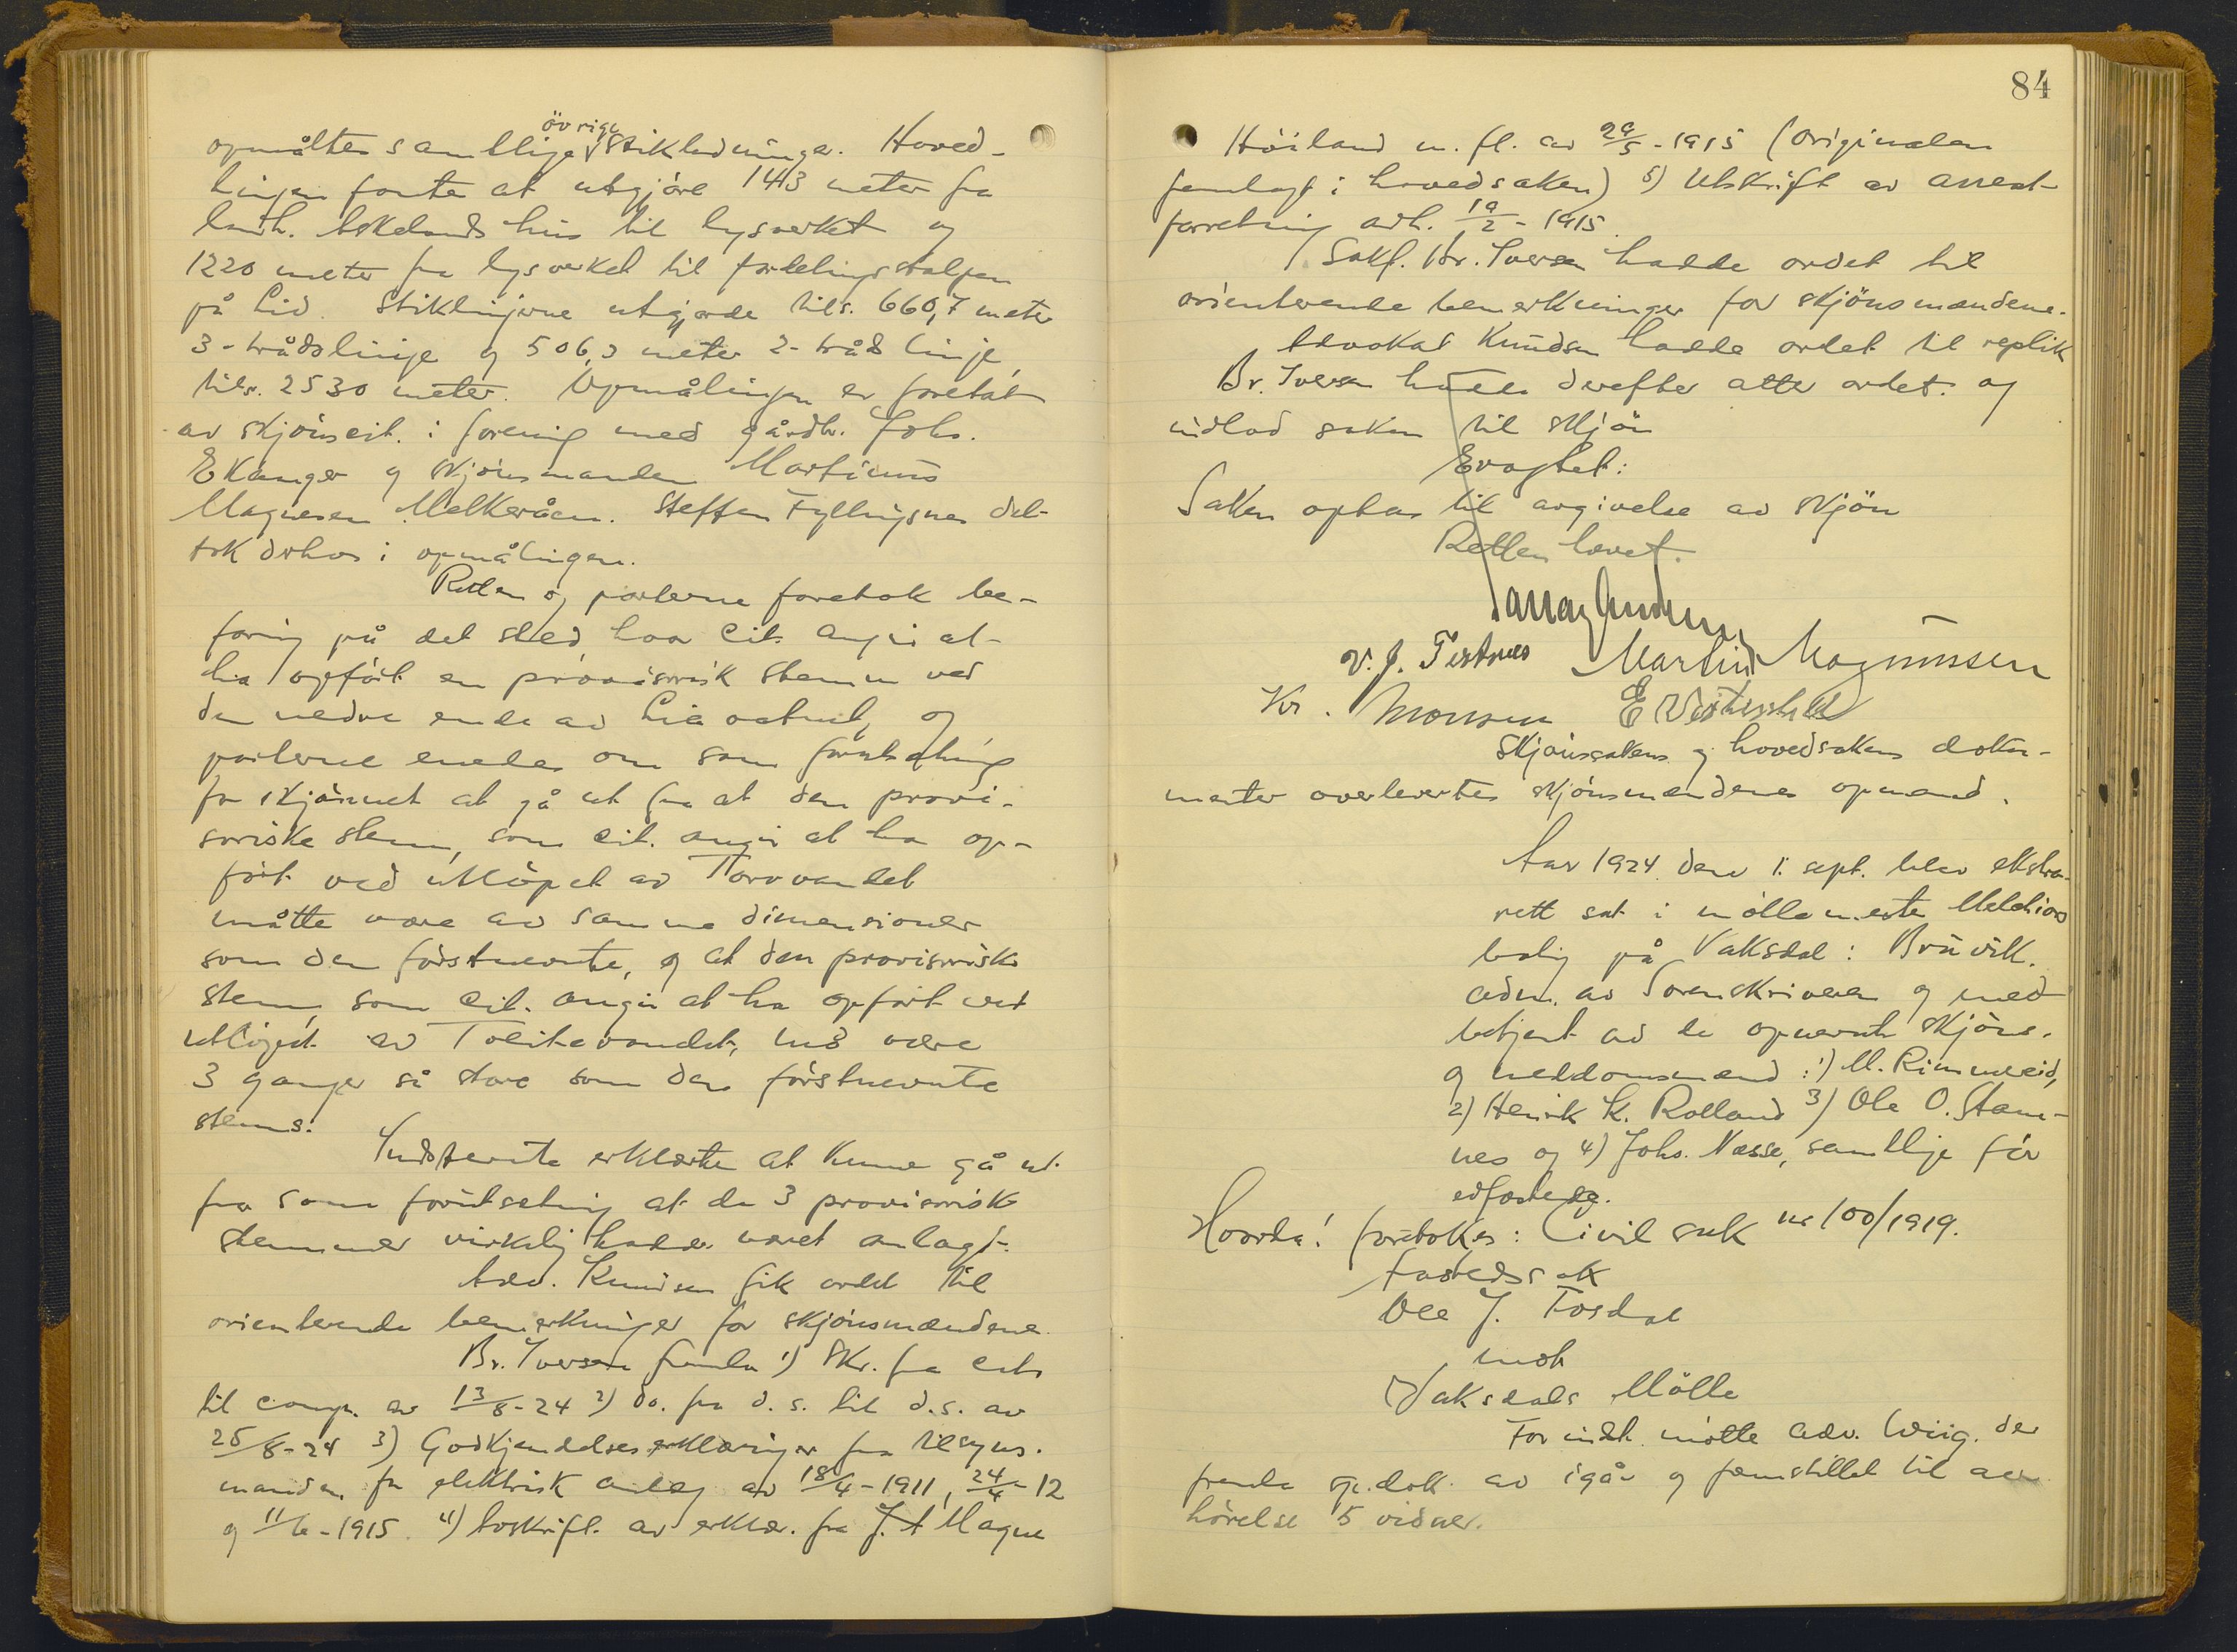 opmåltes samtlige övrige stikledninger. Hoved-
linjen fantes at utgjöre 1413 meter fra
landh. Askelands hus til lysverket og
1220 meter fra lysverket til fordelingsstolpen
på Lid. Stiklinjerne utgjorde tils. 660,7 meter
3-trådslinje og 506,3 meter 2-tråds linje
tils. 2530 meter. Opmålingen er foretat
av skjönscit. i forening med gårdbr. Johs.
Ekanger og skjönsmanden Martinus
Magnesen Melkeråen. Steffen Fyllingsnes del-
tok dehos i opmålingen.
Retten og parterne foretok be-
faring på det sted, hvor cit. angir at
ha opfört en provisorisk stem ved
den nedre ende av Liavatnet, og
parterne enedes om som forutsetning
for skjönnet at gå ut fra at den provi-
soriske stem, som cit. angir at ha op-
fört ved utlöpet av Torvvandet
måtte være av samme dimensioner
som den förstnevnte, og at den provisoriske
stem, som cit. angir at ha opfört ved
utlöpet av Toeitevandet, må være
3 ganger så store som den förstnevnte
stems.
Indstevnte erklærte at kunne gå ut
fra som forutsetning at de 3 provisoriske
stemmer virkelig hadde været anlagt.
Adv. Knudsen fik ordet til
orienterende bemerkninger for skjönsmændene.
Br. Iversen fremla 1) Skr. fra cit.
til comp. av 13/8-24 2) do. fra d.s. til d.s. av
25/8-24 3) Godkjendelseserklæringer fra tilsyns-
manden for elektrisk anlæg av 18/4-1911, 24/4-12
og 11/6-1915. 4) Avskrift av erklær. fra J. A Magne
84
Höiland m. fl. av 29/5-1915 (Originalen
fremlagt i hovedsaken) 5) Utskrift av arrest-
forretning avh. 19/2-1915.
Sakf. Br. Iversen hadde ordet til
orienterende bemerkninger for skjönsmændene.
Advokat Knudsen hadde ordet til replik
Br. Iversen hadde derefter atter ordet og
indlod saken til skjön
Eragtet:
Saken optas til avgivelse av skjön
Retten hævet.
V. J. Martin Magnussen
Kr. Monsen E
Skjönssakens og hovedsakens doku-
menter overlevertes skjönsmændenes opmand.
Aar 1924 den 1. sept. blev ekstra-
rett sat i möllemester Melchiors
bolig på Vaksdal i Bruvik.
adm. av Sorenskriveren og med-
betjent av de opnevnte skjöns-
og meddomsmænd: 1) M. Rimmereid,
2) Henrik K. Rolland 3) Ole O. Stam-
nes og 4) Johs. Næsse, samtlige för
edfæstede.
Hvorda! foretokes: Civil sak nr 100/1919.
Aastedssak
Ole J. Fosdal
mot
Vaksdals Mölle
For indst. mötte adv. Wiig. der
fremla op.dok. av igår og fremstillet til av-
hörelse 5 vidner.